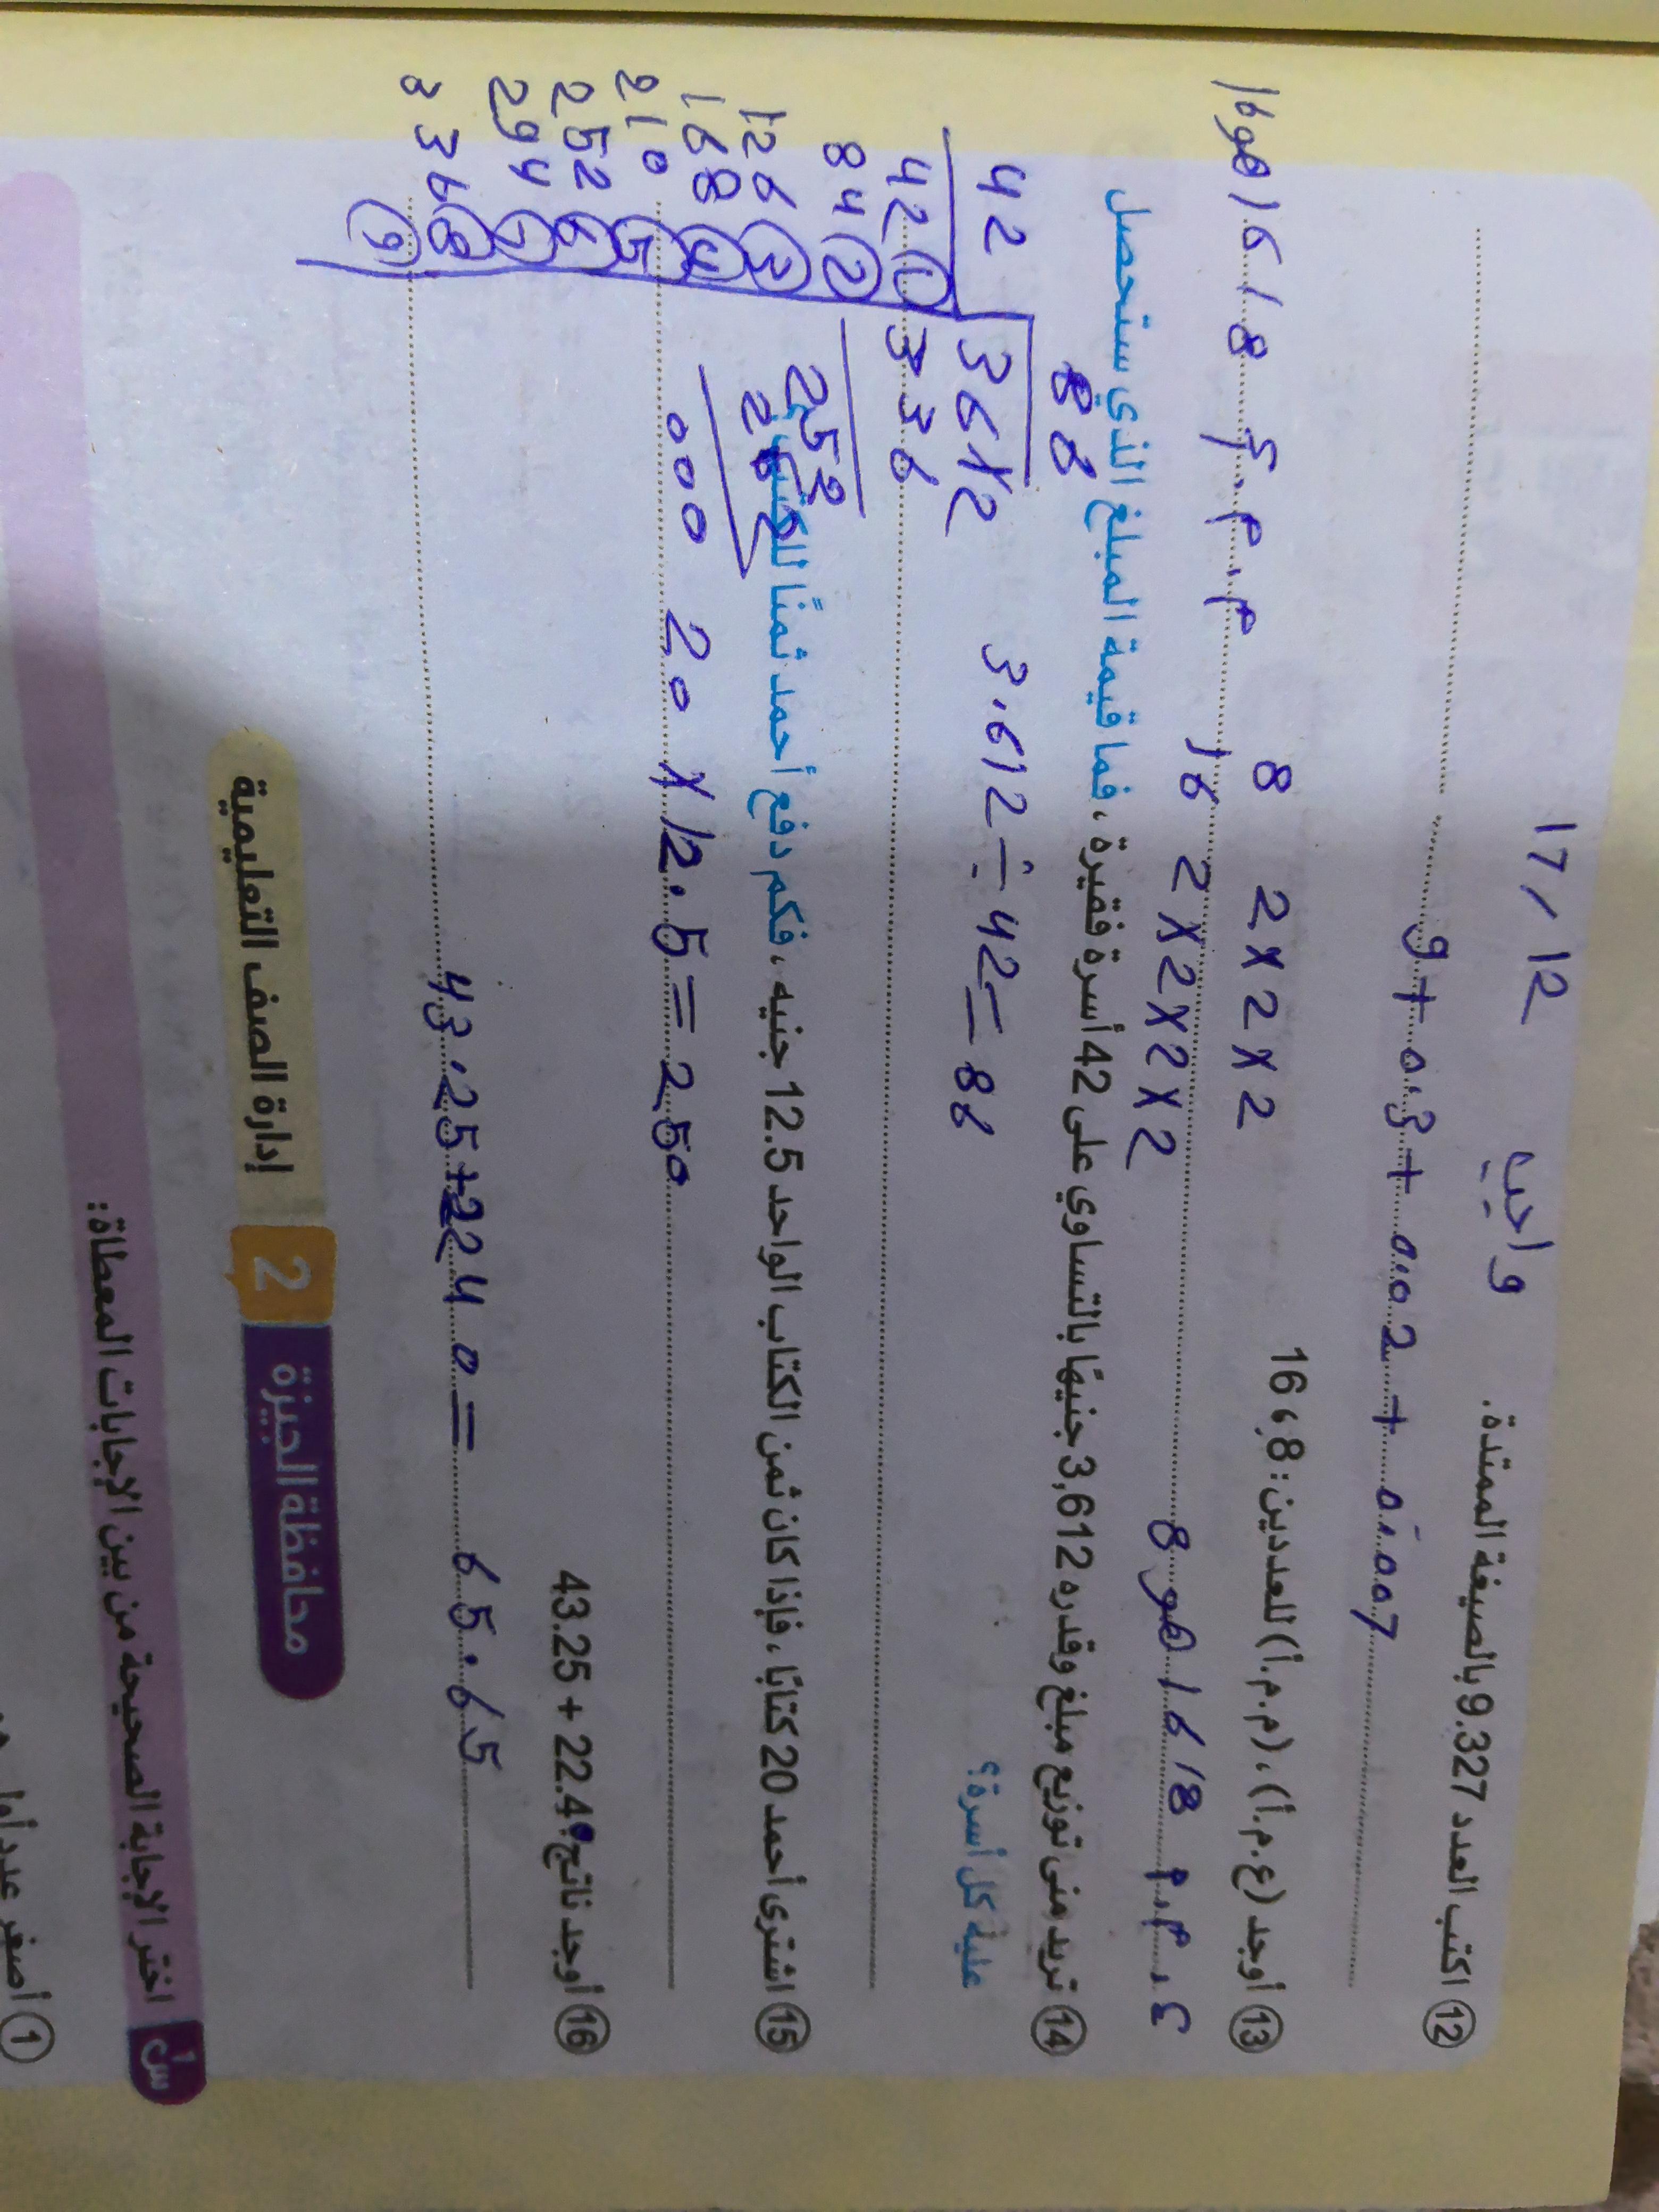 17/12 واجب
12 اكتب العدد 9.327 بالصيغة الممتدة.
9+0.3+0.02+0.007
13 أوجد (ع.م.أ)، (م.م.أ) للعددين: 8، 16
8 2×2×2
16 2×2×2×2
ع.م.أ 8 / 16 هو 8
م.م.أ 8 / 16 هو 16
14 تريد منى توزيع مبلغ وقدره 3,612 جنيهًا بالتساوي على 42 أسرة فقيرة، فما قيمة المبلغ الذي ستحصل
عليه كل أسرة؟
3,612÷42=86
86
42 3612
42 1 336
84 2 252
126 3 252
168 4 000
210 5
252 6
294 7
336 8
9
15 اشترى أحمد 20 كتابًا، فإذا كان ثمن الكتاب الواحد 12.5 جنيه، فكم دفع أحمد ثمنًا للكتب؟
20×12.5=250
16 أوجد ناتج: 43.25 + 22.40
43.25+2240= 65.65
محافظة الجيزة 2 إدارة الصف التعليمية
س1 اختر الإجابة الصحيحة من بين الإجابات المعطاة:
1 أصغر عدد أولي